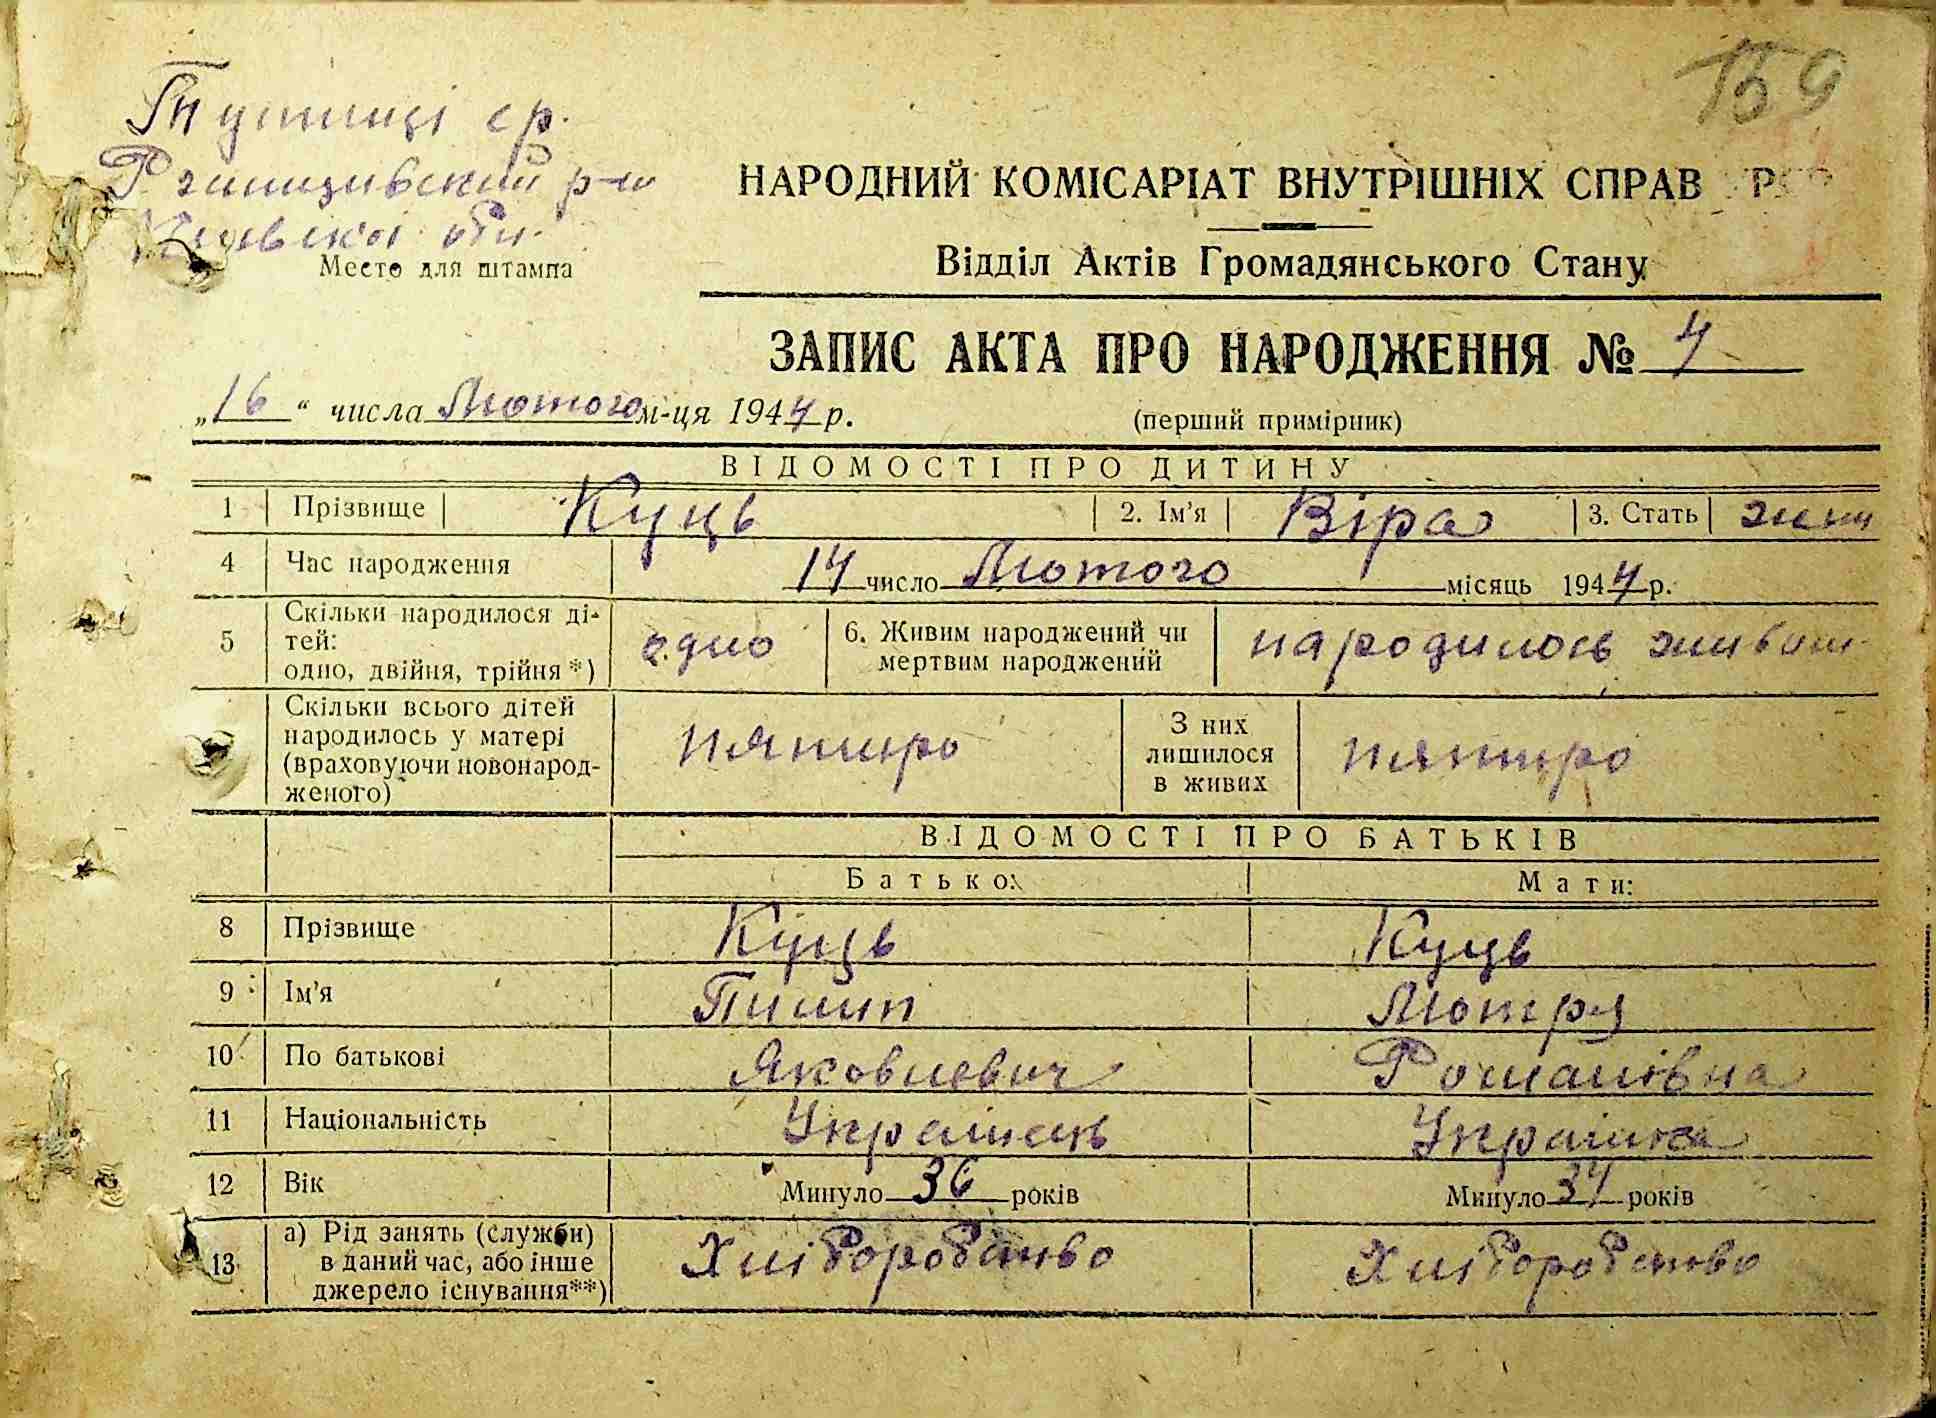 159
Тупиці ср.
Ржищивский р-н
Київскої обл.
Место для штампа
НАРОДНИЙ КОМІСАРІАТ ВНУТРІШНІХ СПРАВ УРСР
Відділ Актів Громадянського Стану
ЗАПИС АКТА ПРО НАРОДЖЕННЯ № 4
„16“ числа Лютого м-ця 1944 р.
(перший примірник)
ВІДОМОСТІ ПРО ДИТИНУ
1 Прізвище Куць 2. Ім'я Віра 3. Стать жін
4 Час народження 14 число Лютого місяць 1944 р.
5 Скільки народилося ді-
тей:
одно, двійня, трійня *) одно
6. Живим народжений чи
мертвим народжений народилось живим
Скільки всього дітей
народилось у матері
(враховуючи новонарод-
женого) пятиро
З них
лишилося
в живих пятиро
ВІДОМОСТІ ПРО БАТЬКІВ
Батько: Мати:
8 Прізвище Куць Куць
9 Ім'я Пилип Мотря
10 По батькові Яковлевич Романівна
11 Національність Українець Українка
12 Вік Минуло 36 років Минуло 34 років
13 а) Рід занять (служби)
в даний час, або інше
джерело існування**) Хліборобство Хліборобство